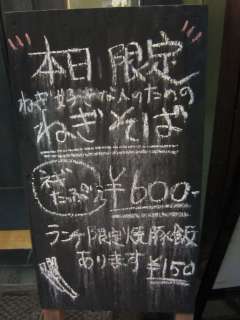 本日限定
ねぎ好きな人のための
ねぎそば
ネギたっぷり
¥600-
ランチ限定焼豚飯
あります ¥150